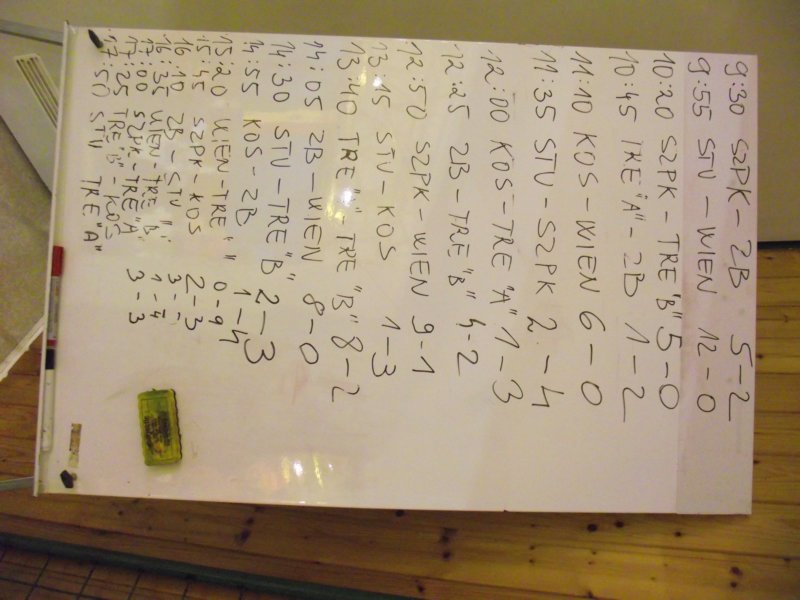 9:30 SZPK - 2B 5-2
9:55 STV - WIEN 12-0
10:20 SZPK - TRE"B" 5-0
10:45 TRE"A" - 2B 1-2
11:10 KOS - WIEN 6-0
11:35 STV - SZPK 2-4
12:00 KOS - TRE"A" 1-3
12:25 2B - TRE"B" 4-2
12:50 SZPK - WIEN 9-1
13:15 STV - KOS 1-3
13:40 TRE"A" - TRE"B" 8-2
14:05 2B - WIEN 8-0
14:30 STV - TRE"B" 2-3
14:55 KOS - 2B 1-4
15:20 WIEN - TRE" " 0-9
15:45 SZPK - KOS 2-3
16:10 2B - STV
16:35 WIEN - TRE"B" 1-4
17:00 SZPK - TRE"A" 3-3
17:25 TRE"B" - KOS
17:50 STV TRE"A"